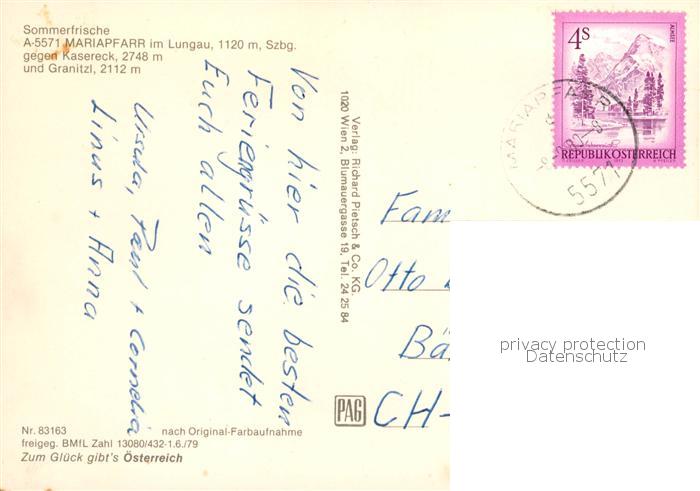 Sommerfrische
A-5571 MARIAPFARR im Lungau, 1120 m, Szbg.
gegen Kasereck, 2748 m
und Granitzl, 2112 m
Von hier die besten
Feriengrüsse sendet
Euch allen
Ursula, Paul + Cornelia
Linus + Anna
Verlag: Richard Pietsch & Co. KG.
1020 Wien 2, Blumauergasse 19, Tel. 24 25 84
4S
ALMSEE
REPUBLIK ÖSTERREICH
MARIAPFARR
5571
Fam
Otto
Bä
CH-
privacy protection
Datenschutz
PAG
Nr. 83163 nach Original-Farbaufnahme
freigeg. BMfL Zahl 13080/432-1.6./79
Zum Glück gibt's Österreich